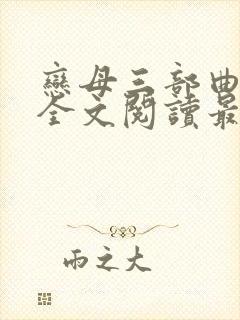 戀母三部曲
全文閱讀最
雨之大